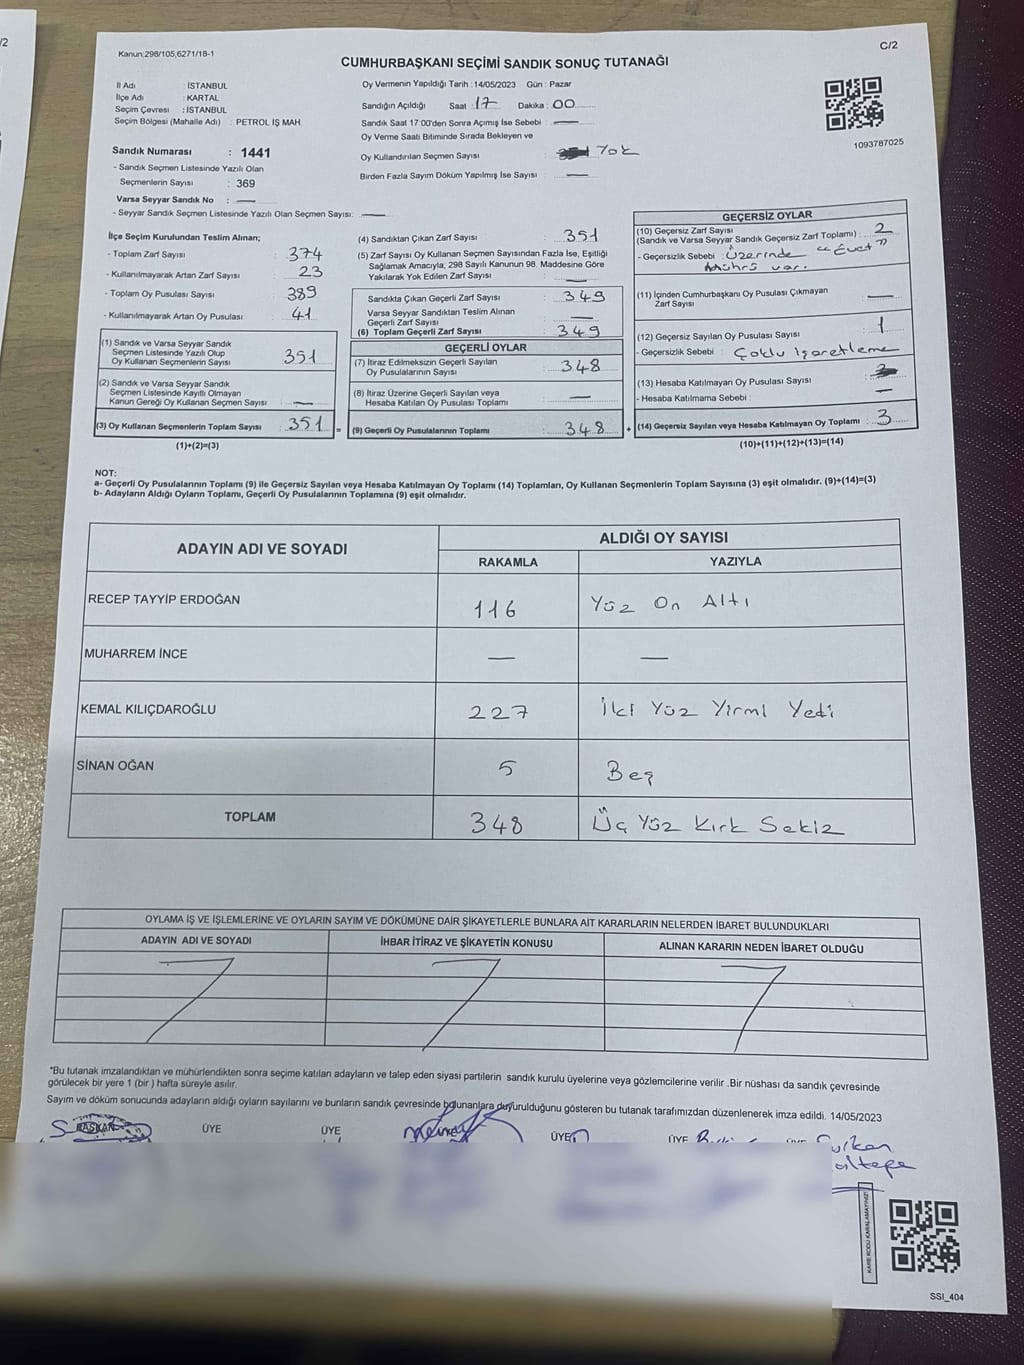 /2
Kanun:298/105,6271/18-1
C/2
CUMHURBAŞKANI SEÇİMİ SANDIK SONUÇ TUTANAĞI
İl Adı : İSTANBUL
İlçe Adı : KARTAL
Seçim Çevresi : İSTANBUL
Seçim Bölgesi (Mahalle Adı) : PETROL İŞ MAH.
Sandık Numarası : 1441
- Sandık Seçmen Listesinde Yazılı Olan
Seçmenlerin Sayısı : 369
Varsa Seyyar Sandık No : —
- Seyyar Sandık Seçmen Listesinde Yazılı Olan Seçmen Sayısı: —
Oy Vermenin Yapıldığı Tarih : 14/05/2023 Gün : Pazar
Sandığın Açıldığı Saat : 17 Dakika : 00
Sandık Saat 17:00'den Sonra Açımış İse Sebebi : —
Oy Verme Saati Bitiminde Sırada Bekleyen ve
Oy Kullandırılan Seçmen Sayısı : Yok
Birden Fazla Sayım Döküm Yapılmış İse Sayısı : —
1093787025
İlçe Seçim Kurulundan Teslim Alınan;
- Toplam Zarf Sayısı : 374
- Kullanılmayarak Artan Zarf Sayısı : 23
- Toplam Oy Pusulası Sayısı : 389
- Kullanılmayarak Artan Oy Pusulası : 41
(1) Sandık ve Varsa Seyyar Sandık
Seçmen Listesinde Yazılı Olup
Oy Kullanan Seçmenlerin Sayısı : 351
(2) Sandık ve Varsa Seyyar Sandık
Seçmen Listesinde Kayıtlı Olmayan
Kanun Gereği Oy Kullanan Seçmen Sayısı : —
(3) Oy Kullanan Seçmenlerin Toplam Sayısı : 351 =
(1)+(2)=(3)
(4) Sandıktan Çıkan Zarf Sayısı : 351
(5) Zarf Sayısı Oy Kullanan Seçmen Sayısından Fazla İse, Eşitliği
Sağlamak Amacıyla, 298 Sayılı Kanunun 98. Maddesine Göre
Yakılarak Yok Edilen Zarf Sayısı : —
Sandıkta Çıkan Geçerli Zarf Sayısı : 349
Varsa Seyyar Sandıktan Teslim Alınan
Geçerli Zarf Sayısı : —
(6) Toplam Geçerli Zarf Sayısı : 349
GEÇERLİ OYLAR
(7) İtiraz Edilmeksizin Geçerli Sayılan
Oy Pusulalarının Sayısı : 348
(8) İtiraz Üzerine Geçerli Sayılan veya
Hesaba Katılan Oy Pusulası Toplamı : —
(9) Geçerli Oy Pusulalarının Toplamı : 348 +
GEÇERSİZ OYLAR
(10) Geçersiz Zarf Sayısı
(Sandık ve Varsa Seyyar Sandık Geçersiz Zarf Toplamı) : 2
- Geçersizlik Sebebi : Üzerinde "Evet"
Mührü var.
(11) İçinden Cumhurbaşkanı Oy Pusulası Çıkmayan
Zarf Sayısı : —
(12) Geçersiz Sayılan Oy Pusulası Sayısı : 1
- Geçersizlik Sebebi : Çoklu İşaretleme
(13) Hesaba Katılmayan Oy Pusulası Sayısı : —
- Hesaba Katılmama Sebebi :
(14) Geçersiz Sayılan veya Hesaba Katılmayan Oy Toplamı : 3
(10)+(11)+(12)+(13)=(14)
NOT:
a- Geçerli Oy Pusulalarının Toplamı (9) ile Geçersiz Sayılan veya Hesaba Katılmayan Oy Toplamı (14) Toplamları, Oy Kullanan Seçmenlerin Toplam Sayısına (3) eşit olmalıdır. (9)+(14)=(3)
b- Adayların Aldığı Oyların Toplamı, Geçerli Oy Pusulalarının Toplamına (9) eşit olmalıdır.
ADAYIN ADI VE SOYADI ALDIĞI OY SAYISI
RAKAMLA YAZIYLA
RECEP TAYYİP ERDOĞAN 116 Yüz On Altı
MUHARREM İNCE — —
KEMAL KILIÇDAROĞLU 227 İki Yüz Yirmi Yedi
SİNAN OĞAN 5 Beş
TOPLAM 348 Üç Yüz Kırk Sekiz
OYLAMA İŞ VE İŞLEMLERİNE VE OYLARIN SAYIM VE DÖKÜMÜNE DAİR ŞİKAYETLERLE BUNLARA AİT KARARLARIN NELERDEN İBARET BULUNDUKLARI
ADAYIN ADI VE SOYADI İHBAR İTİRAZ VE ŞİKAYETİN KONUSU ALINAN KARARIN NEDEN İBARET OLDUĞU
*Bu tutanak imzalandıktan ve mühürlendikten sonra seçime katılan adayların ve talep eden siyasi partilerin sandık kurulu üyelerine veya gözlemcilerine verilir .Bir nüshası da sandık çevresinde
görülecek bir yere 1 (bir ) hafta süreyle asılır.
Sayım ve döküm sonucunda adayların aldığı oyların sayılarını ve bunların sandık çevresinde bulunanlara duyurulduğunu gösteren bu tutanak tarafımızdan düzenlenerek imza edildi. 14/05/2023
BAŞKAN ÜYE ÜYE ÜYE ÜYE
KARE KODU KARALAMAYINIZ!
SSI_404